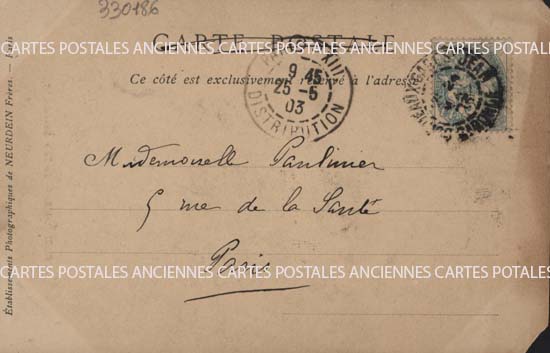 330186
CARTE POSTALE
CARTES POSTALES ANCIENNES CARTES POSTALES ANCIENNES CARTES POSTALES
Ce côté est exclusivement réservé à l'adresse
PARIS XIII
9 45
25 -5
03
DISTRIBUTION
Mademoiselle Paulinier
5 rue de la Santé
Paris
CARTES POSTALES ANCIENNES CARTES POSTALES ANCIENNES CARTES POSTALES
Établissements Photographiques de NEURDEIN Frères. — Paris